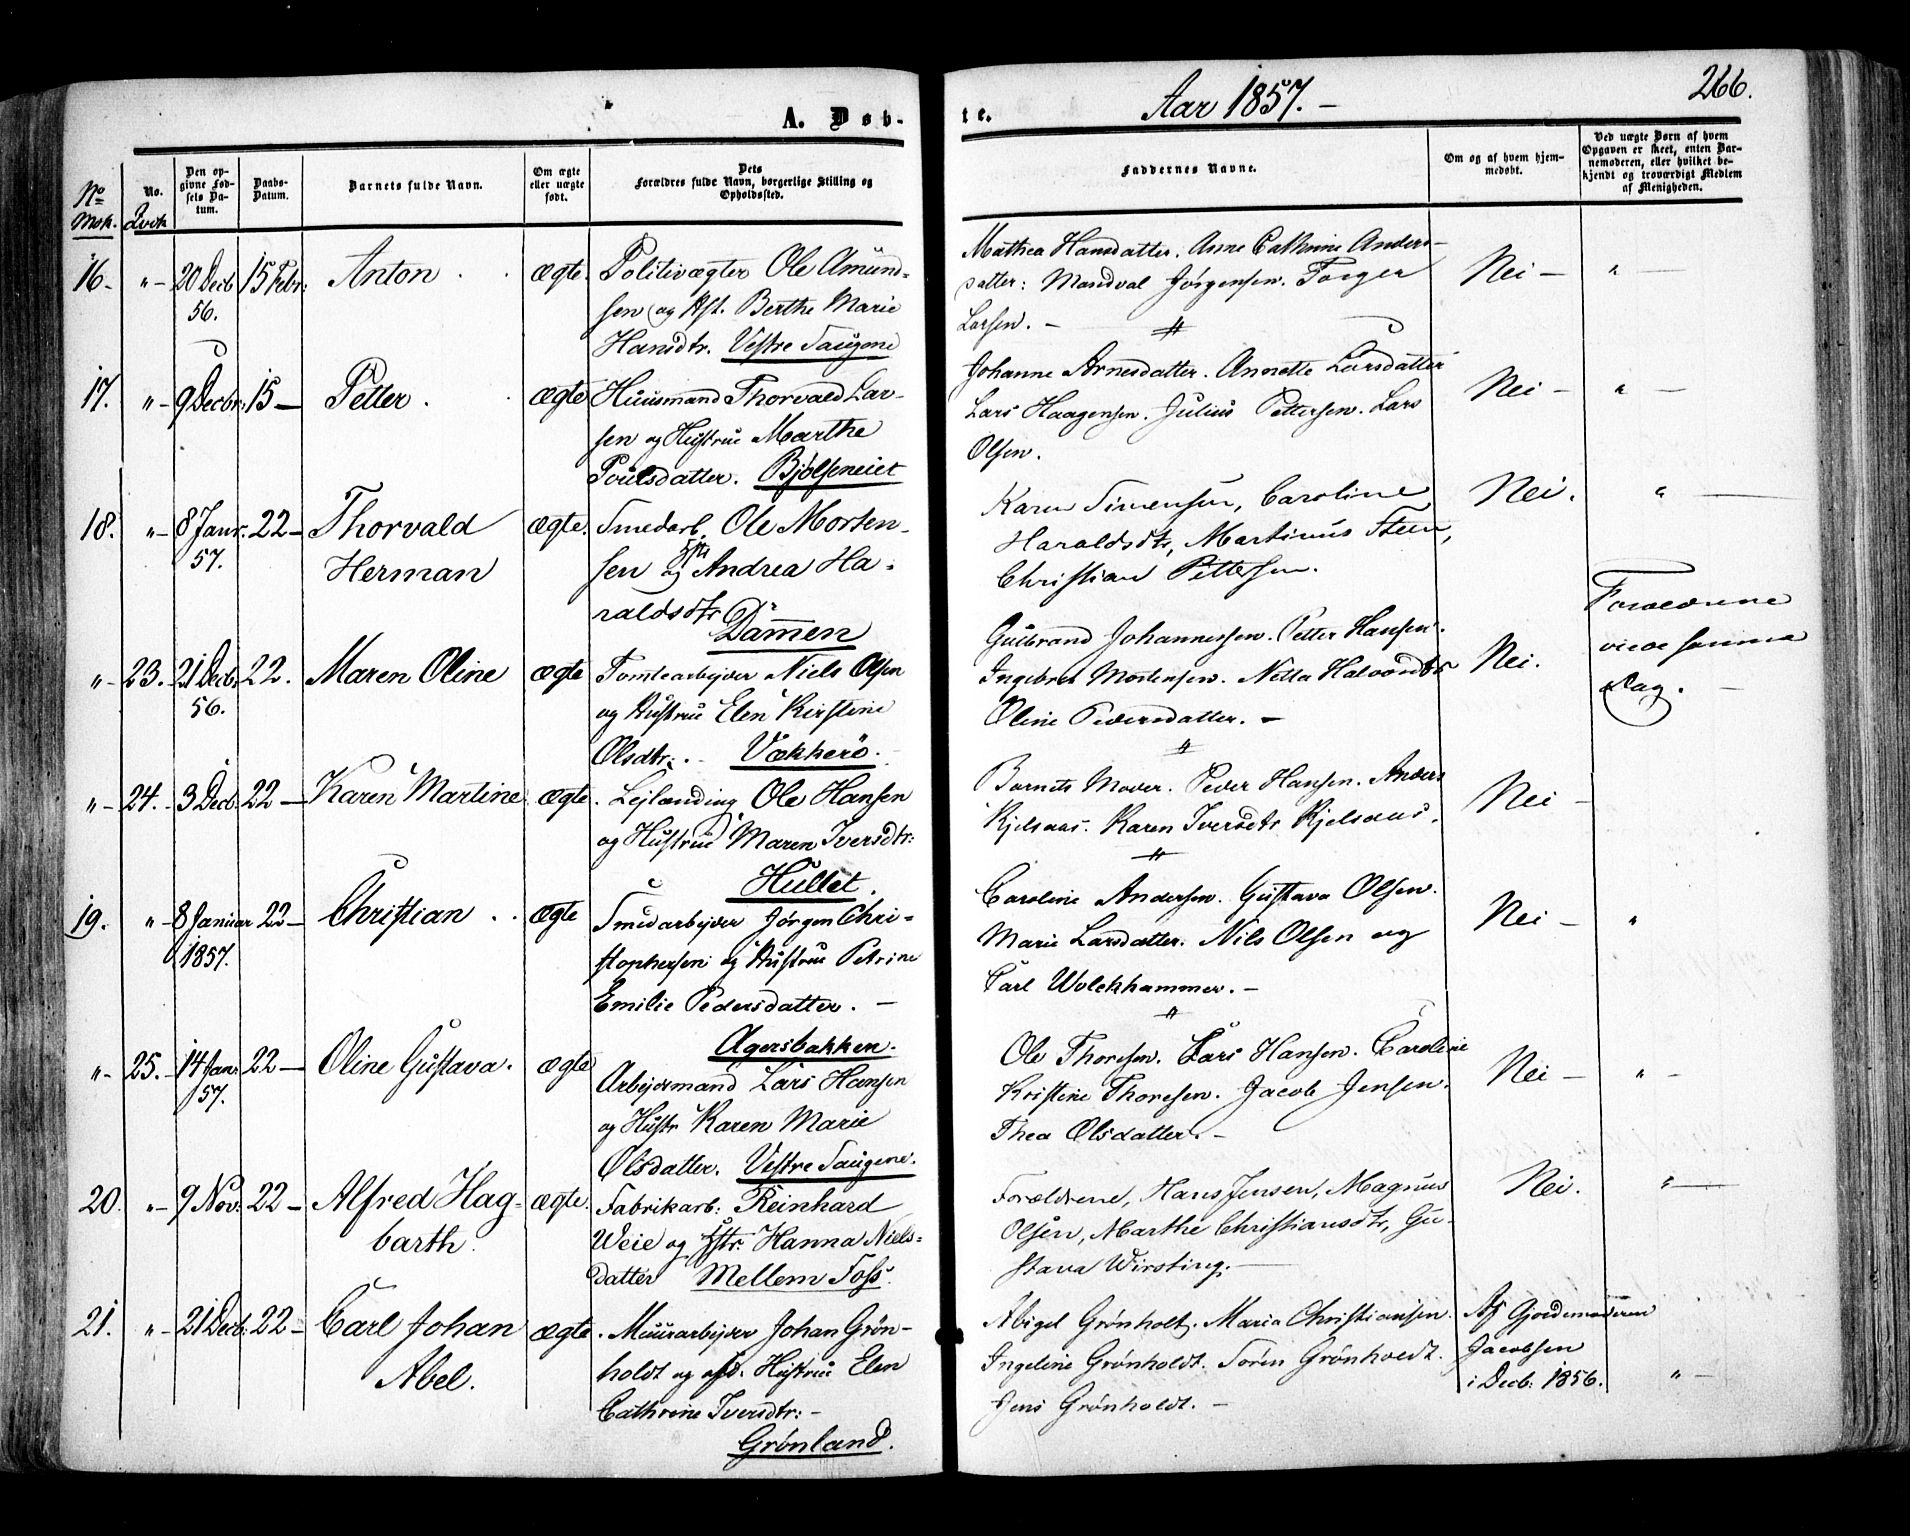 Aar 1857.
266.
A. Døb-
te.
No Msk.
No. Qvok
Den opgivne Fødsels Datum.
Daabs-Datum.
Barnets fulde Navn.
Om ægte eller uægte født.
Dets Forældres fulde Navn, borgerlige Stilling og Opholdssted.
Faddernes Navne.
Om og af hvem hjemmedøbt.
Ved uægte Børn af hvem Opgaven er skeet, enten Barnemoderen, eller hvilket bekjendt og troværdigt Medlem af Menigheden.
16. " 20 Decb 56. 15 Febr: Anton ægte.
Politivægter Ole Amund-
sen og Hst. Berthe Marie
Hansdtr. Vestre Saugene
Mathea Hansdatter. Anne Cathrine Anders-
datter: Mandval Jørgensen. Torger
Larsen.
Nei "
17. " 9 Decbr: 15 Petter ægte
Huusmand Thorvald Lar-
sen og Hustrue Marthe
Poulsdatter. Bjølseneiet
Johanne Arnesdatter. Annette Larsdatter
Lars Haagensen. Julius Pettersen. Lars
Olsen.
Nei "
18. " 8 Janr. 57. 22 Thorvald Herman ægte.
Smedarb. Ole Morten-
sen og Hstr Andrea Ha-
raldsdtr Dammen
Karen Simensen, Caroline
Haraldsdtr, Martinus Steen,
Christian Pettersen.
Nei. "
" 23. 21 Decb: 56. 22. Maren Oline ægte
Tomtearbejder Niels Olsen
og Hustrue Elen Kirstine
Olsdtr. Vækkerö.
Gulbrand Johannessen. Petter Hansen.
Ingebret Mortensen. Netta Halvordtr
Oline Pedersdatter.
Nei.
Forældrene
viede samme
Dag.
" 24. 3 Decb: 22 Karen Martine ægte.
Lejlænding Ole Hansen
og Hustrue Maren Iversdtr:
Hullet.
Barnets Moder. Peder Hansen. Anders
Kjelsaas. Karen Iversdtr Kjelsaas.
Nei
19. " 8 Januar 1857. 22 Christian ægte
Smedarbejder Jørgen Chri-
stophersen og Hustrue Petrine
Emilie Pedersdatter.
Agersbakken.
Caroline Andersen. Gustava Olsen.
Marie Larsdatter. Nils Olsen og
Carl Wolekhammer.
Nei "
" 25. 14 Jan: 57. 22 Oline Gustava. ægte
Arbejdsmand Lars Hansen
og Hustr Karen Marie
Olsdatter. Vestre Saugene.
Ole Thoresen. Lars Hansen. Caroline
Kristine Thoresen. Jacob Jensen.
Thea Olsdatter.
Nei "
20. " 9 Nov: 22 Alfred Hag-
barth. ægte.
Fabrikarb: Reinhard
Weie og Hstr: Hanna Niels-
datter Mellem Foss.
Forældrene, Hans Jensen, Magnus
Olsen, Marthe Christiansdtr, Gu-
stava Wirsting.
Nei. "
21. " 21 Decb: 22 Carl Johan
Abel. ægte.
Muurarbejder Johan Grøn-
holdt og afd. Hustrue Elen
Cathrine Iversdtr:
Grønland.
Abigel Grønholt. Maria Christiansen.
Ingeline Grønholdt. Sören Grønholdt.
Jens Grønholdt.
Af Gjordemoderen
Jacobsen
i Decb: 1856.
"